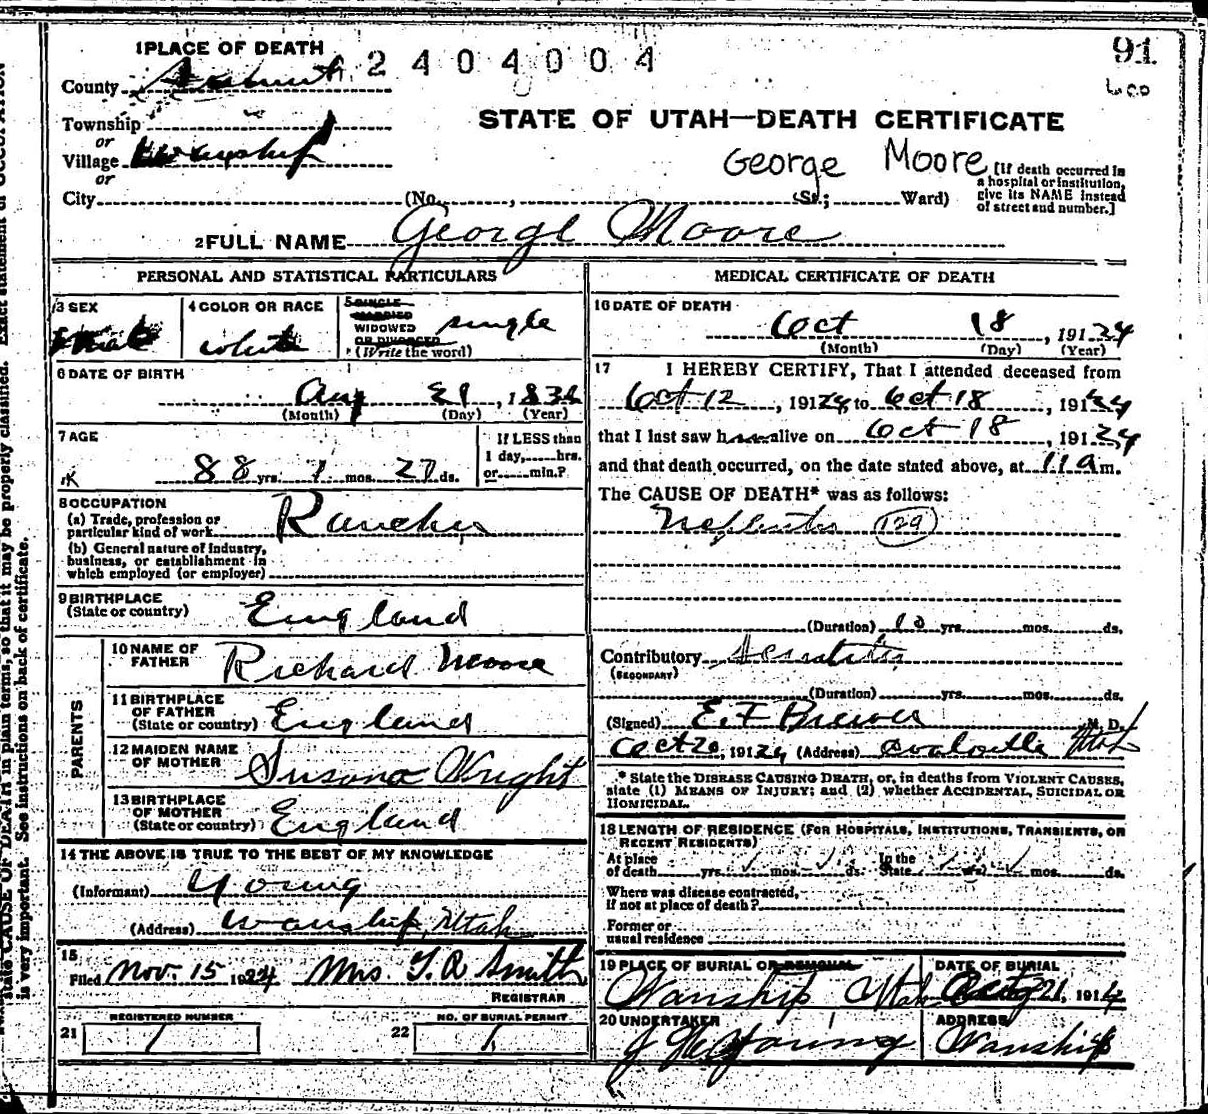 1 PLACE OF DEATH
2 4 0 4 0 0 4
91
County Summit
Township
or
Village Wanship
or
City (No. , St.; Ward)
STATE OF UTAH—DEATH CERTIFICATE
George Moore
[If death occurred in
a hospital or institution,
give its NAME instead
of street and number.]
2 FULL NAME George Moore
PERSONAL AND STATISTICAL PARTICULARS
3 SEX
Male
4 COLOR OR RACE
white
5 SINGLE
MARRIED
WIDOWED
OR DIVORCED
(Write the word)
single
6 DATE OF BIRTH
Aug 21, 183
(Month) (Day) (Year)
7 AGE
88 yrs. 1 mos. 27 ds.
If LESS than
1 day, hrs.
or min.?
8 OCCUPATION
(a) Trade, profession or
particular kind of work Rancher
(b) General nature of industry,
business, or establishment in
which employed (or employer)
9 BIRTHPLACE
(State or country) England
PARENTS
10 NAME OF
FATHER Richard Moore
11 BIRTHPLACE
OF FATHER
(State or country) England
12 MAIDEN NAME
OF MOTHER Susana Wright
13 BIRTHPLACE
OF MOTHER
(State or country) England
14 THE ABOVE IS TRUE TO THE BEST OF MY KNOWLEDGE
(Informant) Young
(Address) Wanship, Utah
15
Filed Nov. 15 1924 Mrs. T. R. Smith
REGISTRAR
REGISTERED NUMBER
21 1
NO. OF BURIAL PERMIT
22 1
MEDICAL CERTIFICATE OF DEATH
16 DATE OF DEATH
Oct 18, 19124
(Month) (Day) (Year)
17 I HEREBY CERTIFY, That I attended deceased from
Oct 12, 19124 to Oct 18, 19124
that I last saw h alive on Oct 18, 19124
and that death occurred, on the date stated above, at 11 a m.
The CAUSE OF DEATH* was as follows:
Nephritis 129
(Duration) 10 yrs. mos. ds.
Contributory
(SECONDARY)
(Duration) yrs. mos. ds.
(Signed) E. F. Brewer M. D.
Oct 20, 19124 (Address) Coalville Utah
* State the DISEASE CAUSING DEATH, or, in deaths from VIOLENT CAUSES,
state (1) MEANS OF INJURY; and (2) whether ACCIDENTAL, SUICIDAL OR
HOMICIDAL.
18 LENGTH OF RESIDENCE (FOR HOSPITALS, INSTITUTIONS, TRANSIENTS, OR
RECENT RESIDENTS)
At place In the
of death yrs. mos. ds. State yrs. mos. ds.
Where was disease contracted,
if not at place of death?
Former or
usual residence
19 PLACE OF BURIAL OR REMOVAL
Wanship Utah
DATE OF BURIAL
21, 1914
20 UNDERTAKER
Young
ADDRESS
Wanship
Exact statement of OCCUPATION
state CAUSE OF DEATH in plain terms, so that it may be properly classified.
is very important. See instructions on back of certificate.